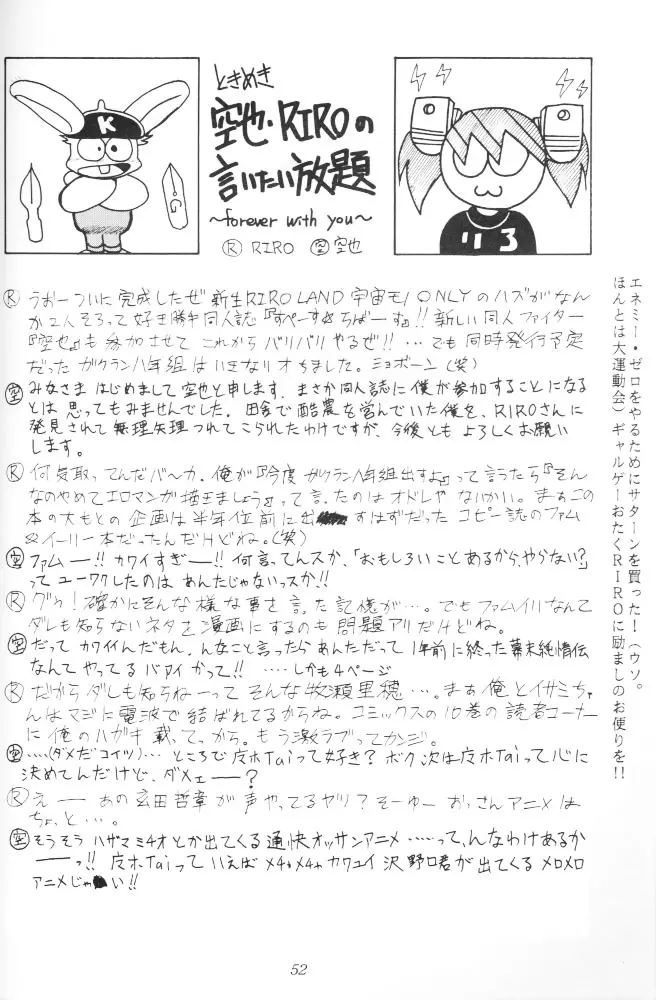 ときめき
空也・RIROの
言いたい放題
～forever with you～
Ⓡ RIRO ㊢空也
K
G
リ ろ
エネミー・ゼロをやるためにサターンを買った！（ウソ。
ほんとは大運動会）ギャルゲーおたくRIROに励ましのお便りを!!
Ⓡ うおーついに完成したぜ新生RIRO LAND 宇宙モノONLYのハズがなん
か2人そろって好き勝手同人誌『すぺーす☆ちばーす』!! 新しい同人ファイター
『空也』も参加させて これからバリバリやるぜ!! …でも同時発行予定
だった ガクラン八年組はいきなりオちました。ショボーン（笑）
空 みなさま はじめまして空也と申します。まさか同人誌に僕が参加することになる
とは 思ってもみませんでした。田舎で酪農を営んでいた僕を、RIROさんに
発見されて無理矢理つれてこられたわけですが、今後とも よろしくお願い
します。
Ⓡ 何気取ってんだバ〜カ。俺が『今度 ガクラン八年組出すよ』って言うたら『そん
なのやめてエロマンガ描きましょう』って言ったのはオドレや ないかい。まぁこの
本の大もとの企画は半年位前に出すはずだった コピー誌のファム
&イーリー本だったんだけどね。（笑）
空 ファムー!! カワイすぎー!! 何言ってんスか、「おもしろいことあるから、やらない？」
って ユーワクしたのは あんたじゃないっスか!!
Ⓡ グゥ！確かにそんな様な事を言った記憶が…。でもファムイリなんて
ダレも知らないネタを漫画にするのも 問題アリだけどね。
空 だって カワイんだもん。んなこと言ったらあんただって 1年前に終った幕末純情伝
なんて やってる バァイ かって!! ……しかも4ページ
Ⓡ だからダレも知らねーって そんな牧瀬里穂…。まぁ 俺とイサミちゃ
んはマジに電波で 結ばれてるからね。コミックスの10巻の読者コーナー
に 俺のハガキ 載ってっから。もう激ラブってカンジ。
空 ……（ダメだコイツ）… ところで 虎ホTaiって好き？ ボク次は虎ホTaiって心に
決めてんだけど、ダメェー？
Ⓡ えー あの玄田哲章が声やってるヤツ？そーゆー おっさんアニメは
ちょっと…。
空 そうそう ハザマミチオとか出てくる 通快オッサンアニメ ……って、んなわけあるか
ーっ!! 虎ホTaiって いえば メチャメチャ カワユイ 沢野口君が出てくる メロメロ
アニメじゃい!!
52